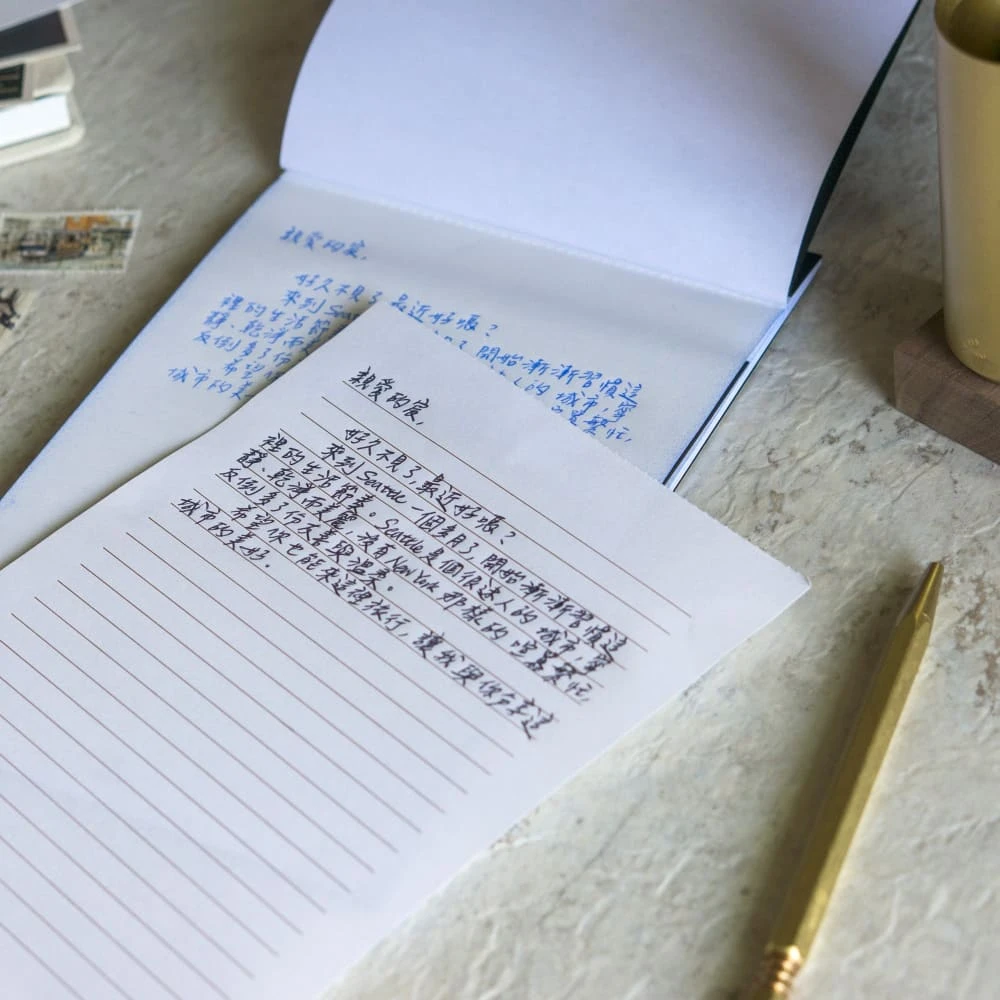 親愛的宸,
好久不見了 最近好嗎?
來到Sea 了 開始漸漸習慣這
裡的生活節 人的城市,寧
靜、乾淨而 繁忙,
反倒多了份
希望
城市的美
親愛的宸,
好久不見了,最近好嗎?
來到Seattle 一個多月了,開始漸漸習慣這
裡的生活節奏。Seattle是個很迷人的城市,寧
靜、乾淨而美麗,沒有NewYork那樣的喧囂繁忙,
反倒多了份 與溫柔。
希望你也能來這裡旅行,讓我與你分享這
城市的美好。